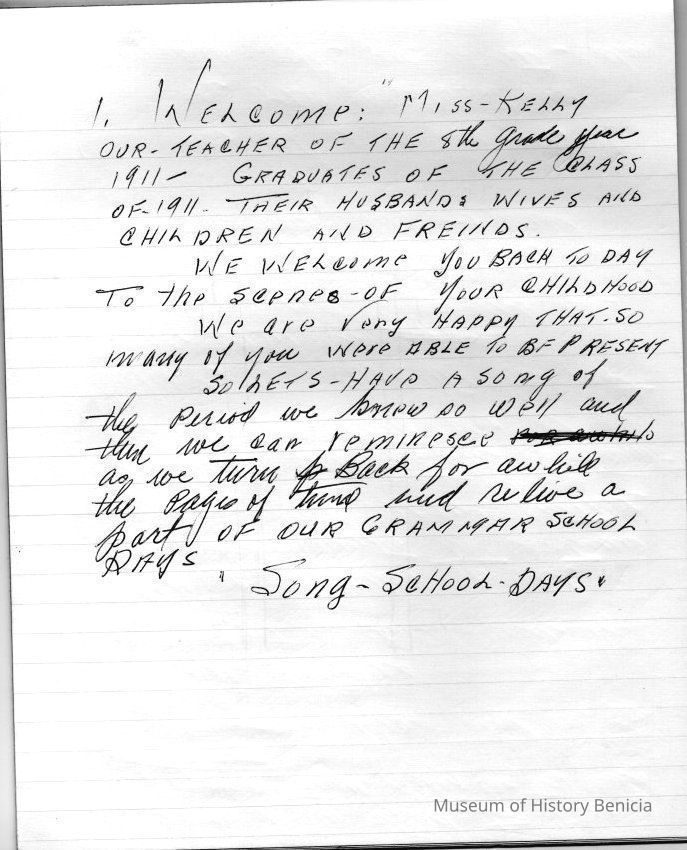 1. WELCOME: "MISS-KELLY
OUR-TEACHER OF THE 8th grade year
1911- GRADUATES OF THE CLASS
OF-1911. THEIR HUSBANDS WIVES AND
CHILDREN AND FREINDS.
WE WELCOME YOU BACK TO DAY
To the scenes-OF YOUR CHILDHOOD
We are very HAPPY THAT-SO
many of you were ABLE TO BE PRESENT
SO LETS-HAVE A song of
the Period we knew so well and
then we can reminesce
as we turn Back for awhile
the Pages of time and relive a
part OF OUR GRAMMAR SCHOOL
DAYS
"Song-SCHOOL-DAYS"
Museum of History Benicia